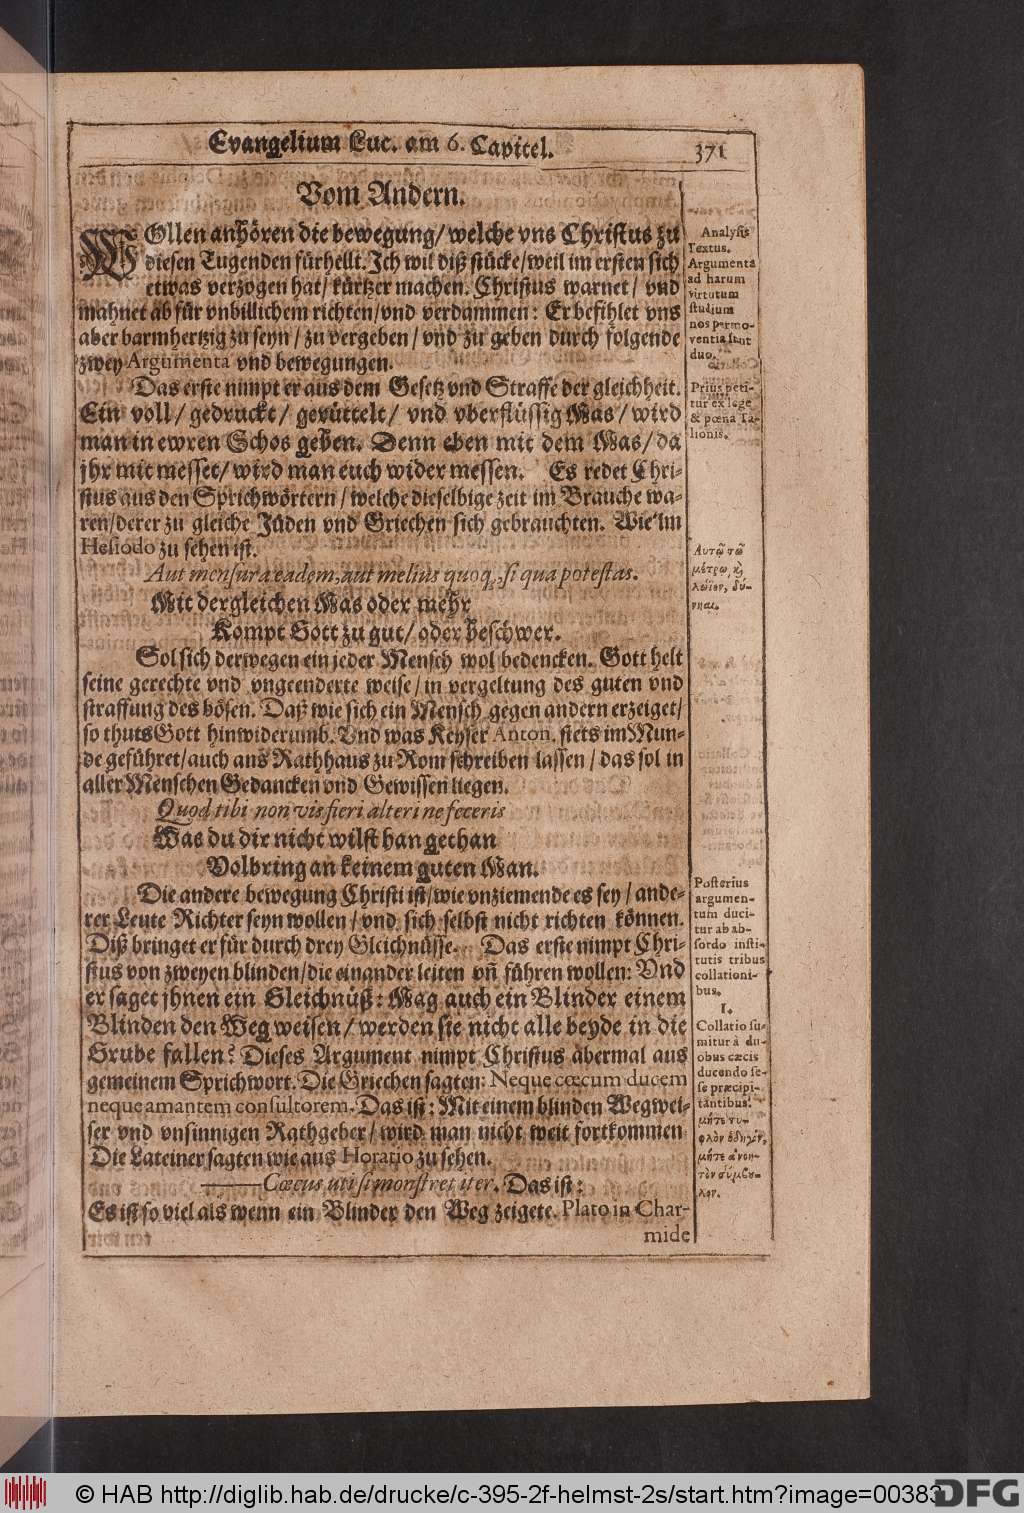 Evangelium Luc. am 6. Capitel.
371
Vom Andern.
WOllen anhören die bewegung/welche vns Christus zu
diesen Tugenden fürhellt. Ich wil diß stücke/weil im ersten sich
etwas verzogen hat/kürtzer machen. Christus warnet/vnd
mahnet ab für vnbillichem richten/vnd verdammen: Er befihlet vns
aber barmhertzig zu seyn/zu vergeben/vnd zu geben durch folgende
zwey Argumenta vnd bewegungen.
Das erste nimpt er aus dem Gesetz vnd Straffe der gleichheit.
Ein voll/gedruckt/gerüttelt/vnd vberflüssig Mas/wird
man in ewren Schos geben. Denn eben mit dem Mas/da
jhr mit messet/wird man euch wider messen. Es redet Chri-
stus aus den Sprichwörtern/welche dieselbige zeit im Brauche wa-
ren/derer zu gleiche Jüden vnd Griechen sich gebrauchten. Wie im
Hesiodo zu sehen ist.
Aut mensura eadem, aut melius quoq;, si qua potestas.
Mit dergleichen Mas oder mehr
Kompt Gott zu gut/oder beschwer.
Sol sich derwegen ein jeder Mensch wol bedencken. Gott helt
seine gerechte vnd vngeenderte weise/in vergeltung des guten vnd
straffung des bösen. Daß wie sich ein Mensch gegen andern erzeiget/
so thuts Gott hinwiderumb. Vnd was Keyser Anton. stets im Mun-
de geführet/auch ans Rathhaus zu Rom schreiben lassen/das sol in
aller Menschen Gedancken vnd Gewissen liegen.
Quod tibi non vis fieri alteri ne feceris
Was du dir nicht wilst han gethan
Volbring an keinem guten Man.
Die andere bewegung Christi ist/wie vnziemende es sey/ande-
rer Leute Richter seyn wollen/vnd sich selbst nicht richten können.
Diß bringet er für durch drey Gleichnüsse. Das erste nimpt Chri-
stus von zweyen blinden/die einander leiten vñ führen wollen: Vnd
er saget jhnen ein Gleichnüß: Mag auch ein Blinder einem
Blinden den Weg weisen/werden sie nicht alle beyde in die
Grube fallen? Dieses Argument nimpt Christus abermal aus
gemeinem Sprichwort. Die Griechen sagten: Neque cœcum ducem
neque amantem consultorem. Das ist: Mit einem blinden Wegwei-
ser vnd vnsinnigen Rathgeber/wird man nicht weit fortkommen
Die Lateiner sagten wie aus Horatio zu sehen.
——Cœcus uti si monstret iter. Das ist:
Es ist so viel als wenn ein Blinder den Weg zeigete. Plato in Char-
mide
Analysis
Textus.
Argumenta
ad harum
virtutum
studium
nos permo-
ventia sunt
duo.
Prius peti-
tur ex lege
& pœna Ta-
lionis.
Αυτῷ τῷ
μέτρῳ, κỳ
λώϊον, δύ-
νηαι.
Posterius
argumen-
tum duci-
tur ab ab-
surdo insti-
tutis tribus
collationi-
bus.
I.
Collatio su-
mitur à du-
obus cæcis
ducendo se-
se præcipi-
tantibus.
μήτε τυ-
φλὸν ὁδηγὸν,
μήτε ἀνοη-
τὸν σύμβου-
λον.
© HAB http://diglib.hab.de/drucke/c-395-2f-helmst-2s/start.htm?image=00383
DFG